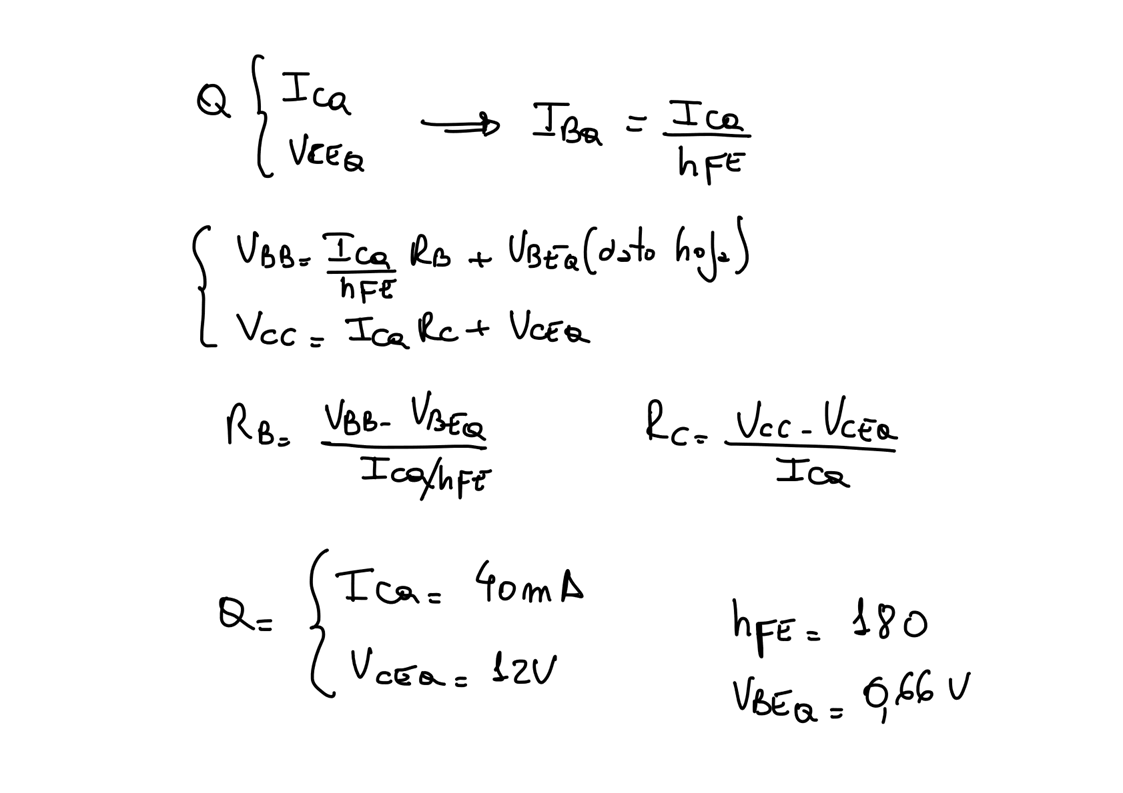 Q { ICQ ⟹ IBQ = ICQ / hFE
VCEQ
{ VBB = ICQ/hFE RB + VBEQ (dato hoja)
VCC = ICQ RC + VCEQ
RB = (VBB - VBEQ) / (ICQ/hFE) RC = (VCC - VCEQ) / ICQ
Q = { ICQ = 40mA
hFE = 180
VCEQ = 12V
VBEQ = 0,66 V